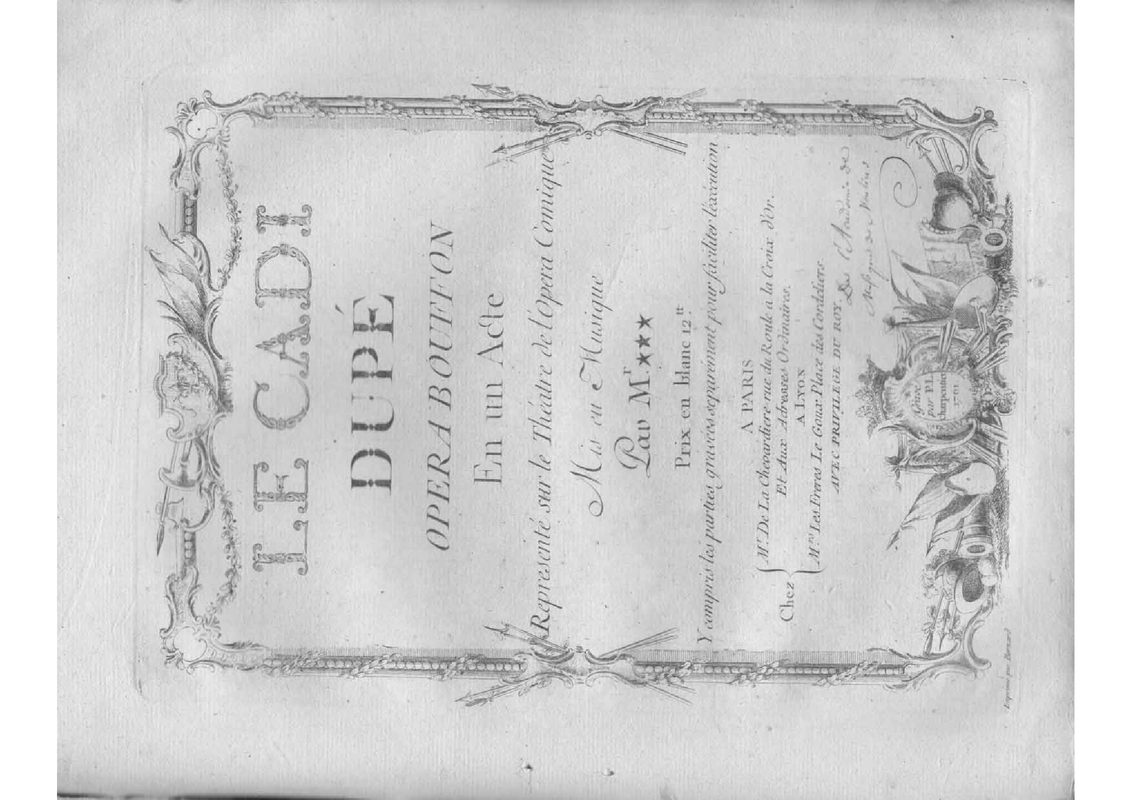 LE CADI
DUPÉ
OPERA BOUFFON
En un Acte
Représenté sur le Théâtre de l'Opera Comique
Mis en Musique
Par Mr. ★★★
Prix en blanc 12tt
Y compris les parties gravées separément pour faciliter l'exécution
A PARIS
Chez
Mr. De La Chevardiere rue du Roule à la Croix d'Or.
Et Aux Adresses Ordinaires.
A LYON
Mrs. Les Freres Le Goux Place des Cordeliers
AVEC PRIVILEGE DU ROY
De l'Academie de
Musique de Moulins
Gravé
par P.L.
charpentier
Imprimé par Bernard